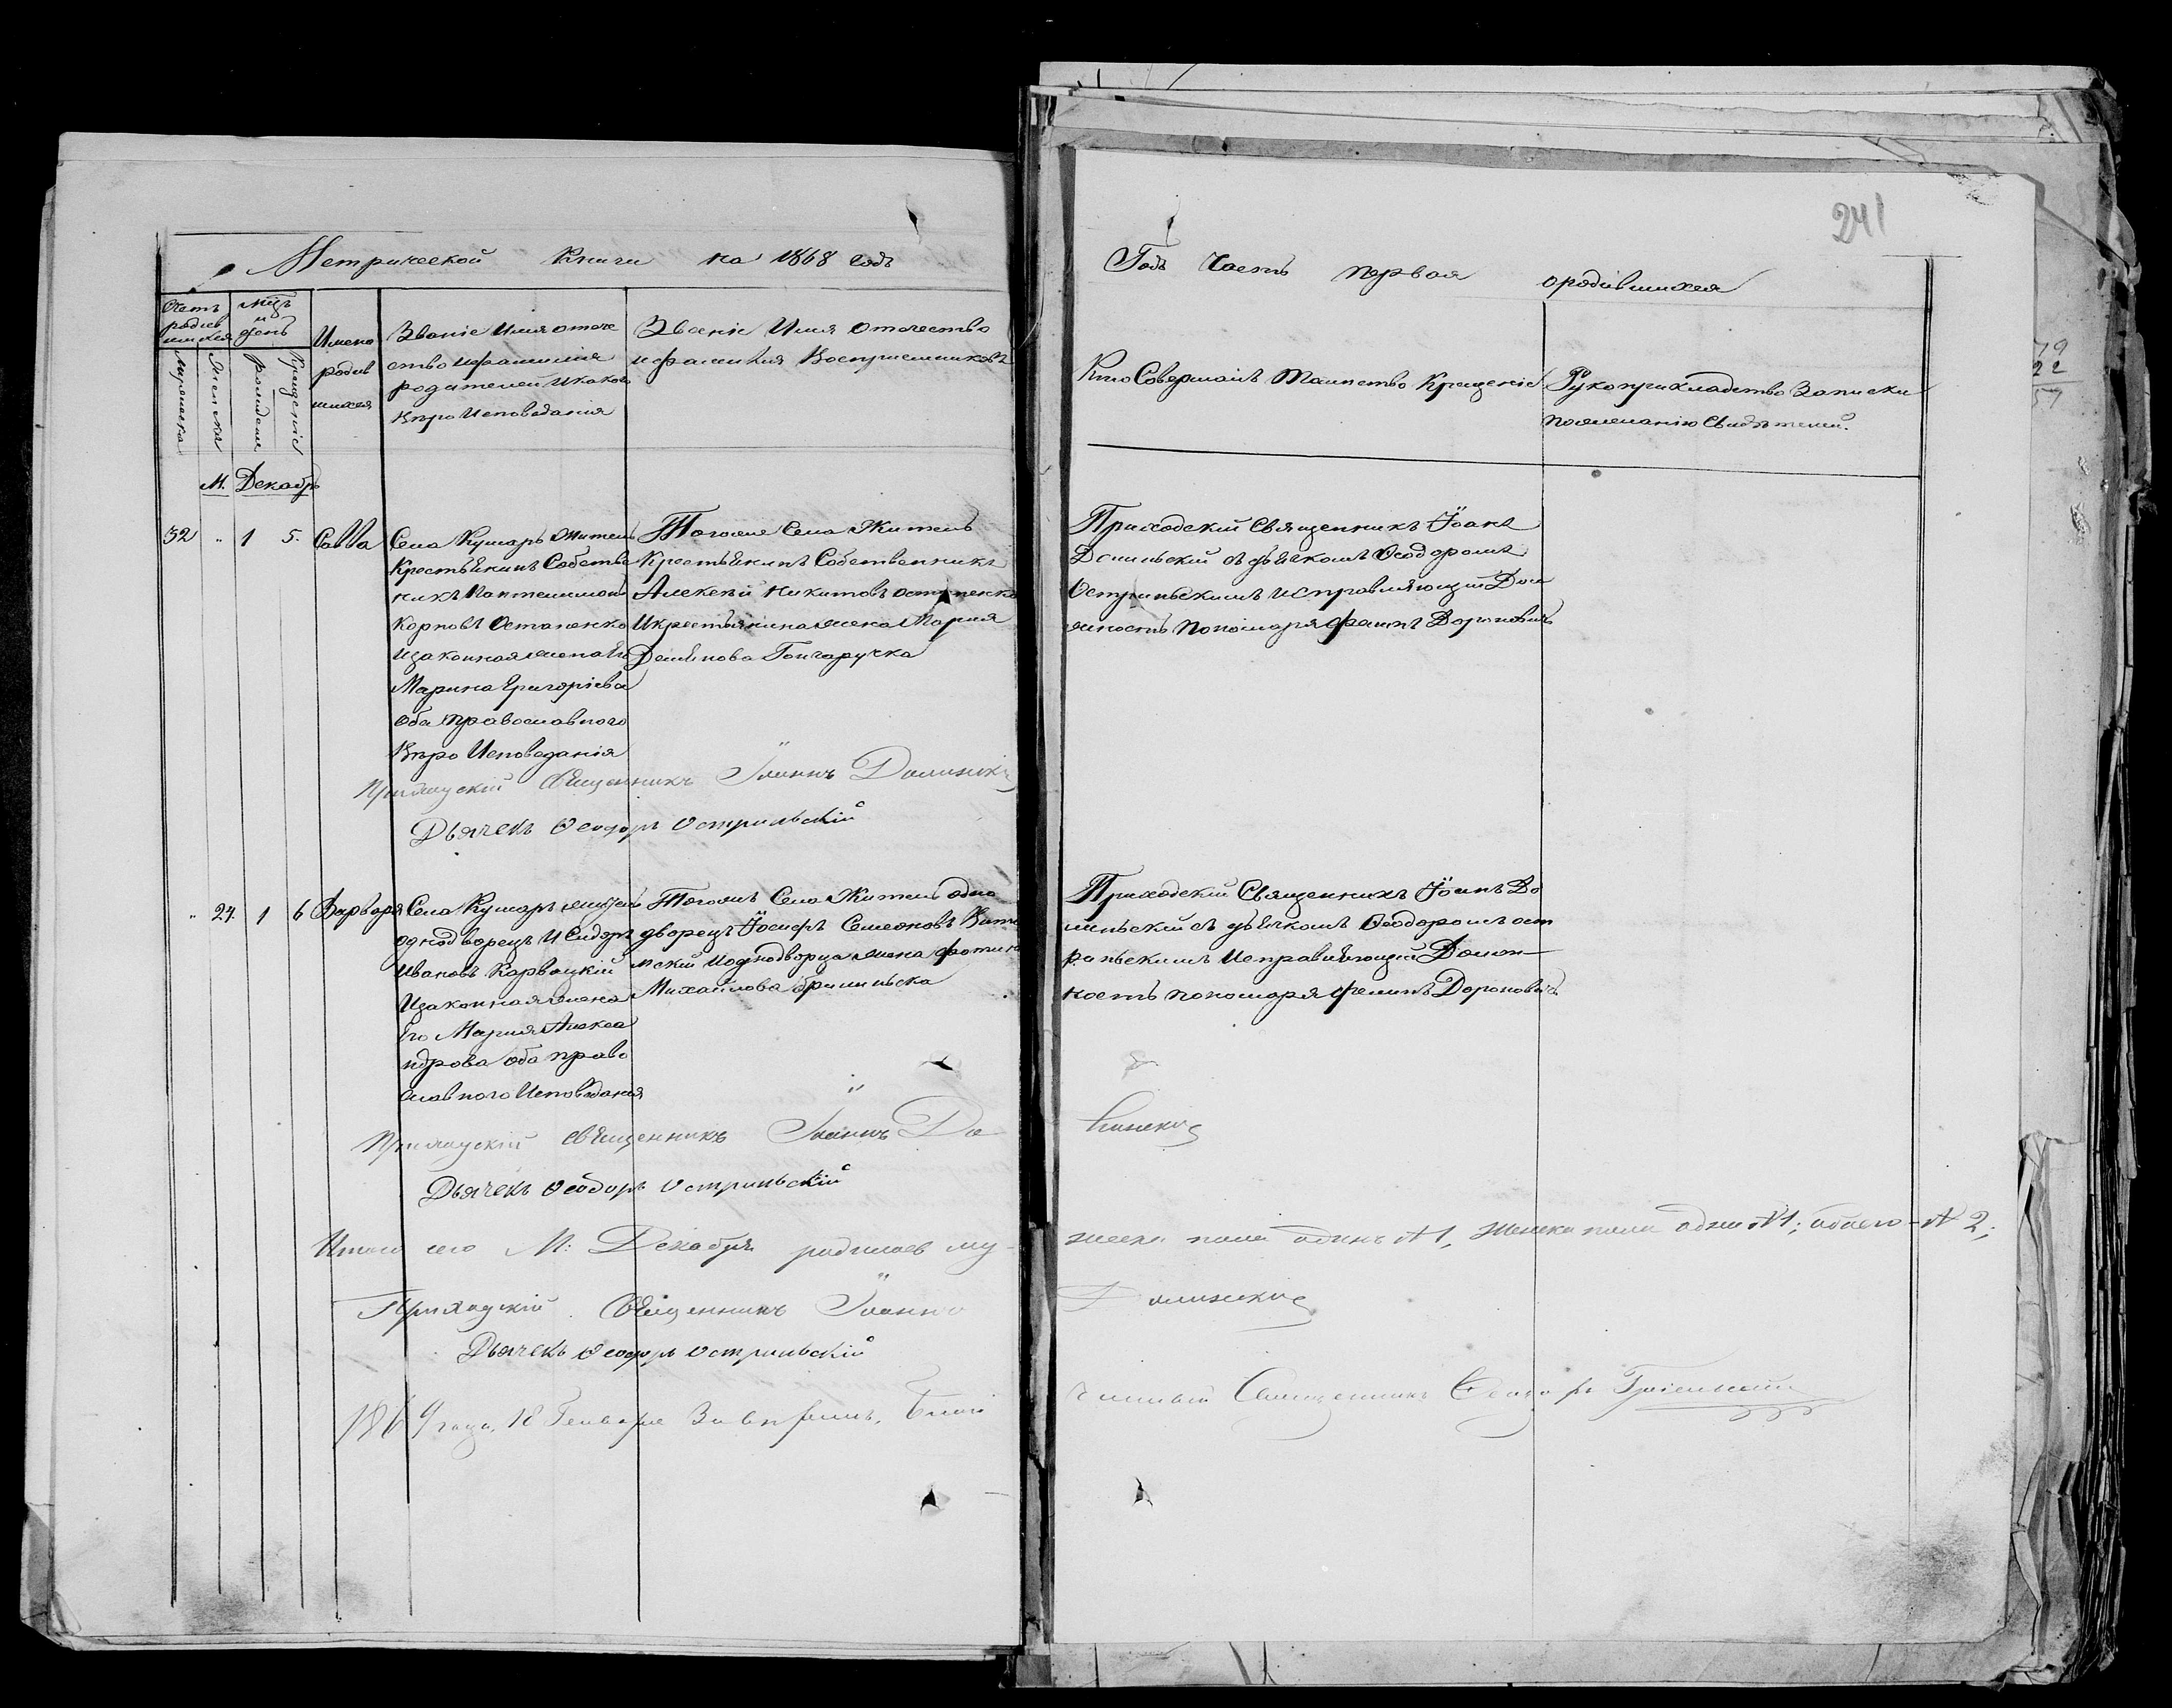 241
Метрической Книги на 1868 годъ
Годъ Часть первая ородившихся
Счетъ родив шихся
Мѣц и день
Мужеска
Женска
рожденія
Крещеніе
Имена родив шихся
Званіе Имя отече
ство ифамилія
родителей Икаково
Впро Исповѣданія
Званіе Имя Отечество
ифамилия Воспріемниковъ
Кто Совершалъ Таинство Крещеніе
Рукоприкладство Записки
пожеланію Свидѣтелей.
М. Декабрь
32 " 1 5. Савва
Села Кушаръ житель
Крестьянинъ Собстве
никъ Пантелимонъ
Карповъ Остапенко
Изаконная жена Его
Марина Григоріева
Оба православного
Впро Исповеданія
Тогоже Села Житель
Крестьянинъ Собственникъ
Алексѣй Никитовъ Остапенко
Икрестьянина жена Марія
Демянова Гончаручка
Приходскій Священникъ Іоанъ
Долинскій съ дьячкомъ Феодоромъ
Острильскимъ исправляющій Дол
жность пономаря
Приходскій Священникъ Іоаннъ Долинскій
Дьячекъ Феодоръ Острильскій
" 24. 1 6 Варвара
Села Кушаръ житель
однодворецъ Исидоръ
Ивановъ Карвацкій
Изаконная жена
Его Марія Алекса
ндрова оба право
славного Исповѣданія
Тогожъ Села Житель одно
дворецъ Іосифъ Семеоновъ
мскій иоднодворца жена фотина
Михайлова
Приходскій Священникъ Іоанъ До
линьскій съ дьячкомъ Феодоромъ ост
рильскимъ Исправляющій Долж
ность пономаря
Приходскій Священникъ Іоаннъ До линскій
Дьячекъ Феодоръ Острильскій
Итого сего М: Декабря родилось му жеска пола одинъ №1, женска пола одна №1; обоего №2;
Приходскій Священникъ Іоаннъ Долинскій
Дьячекъ Феодоръ Острильскій
1869 года, 18 Генваря
Священникъ